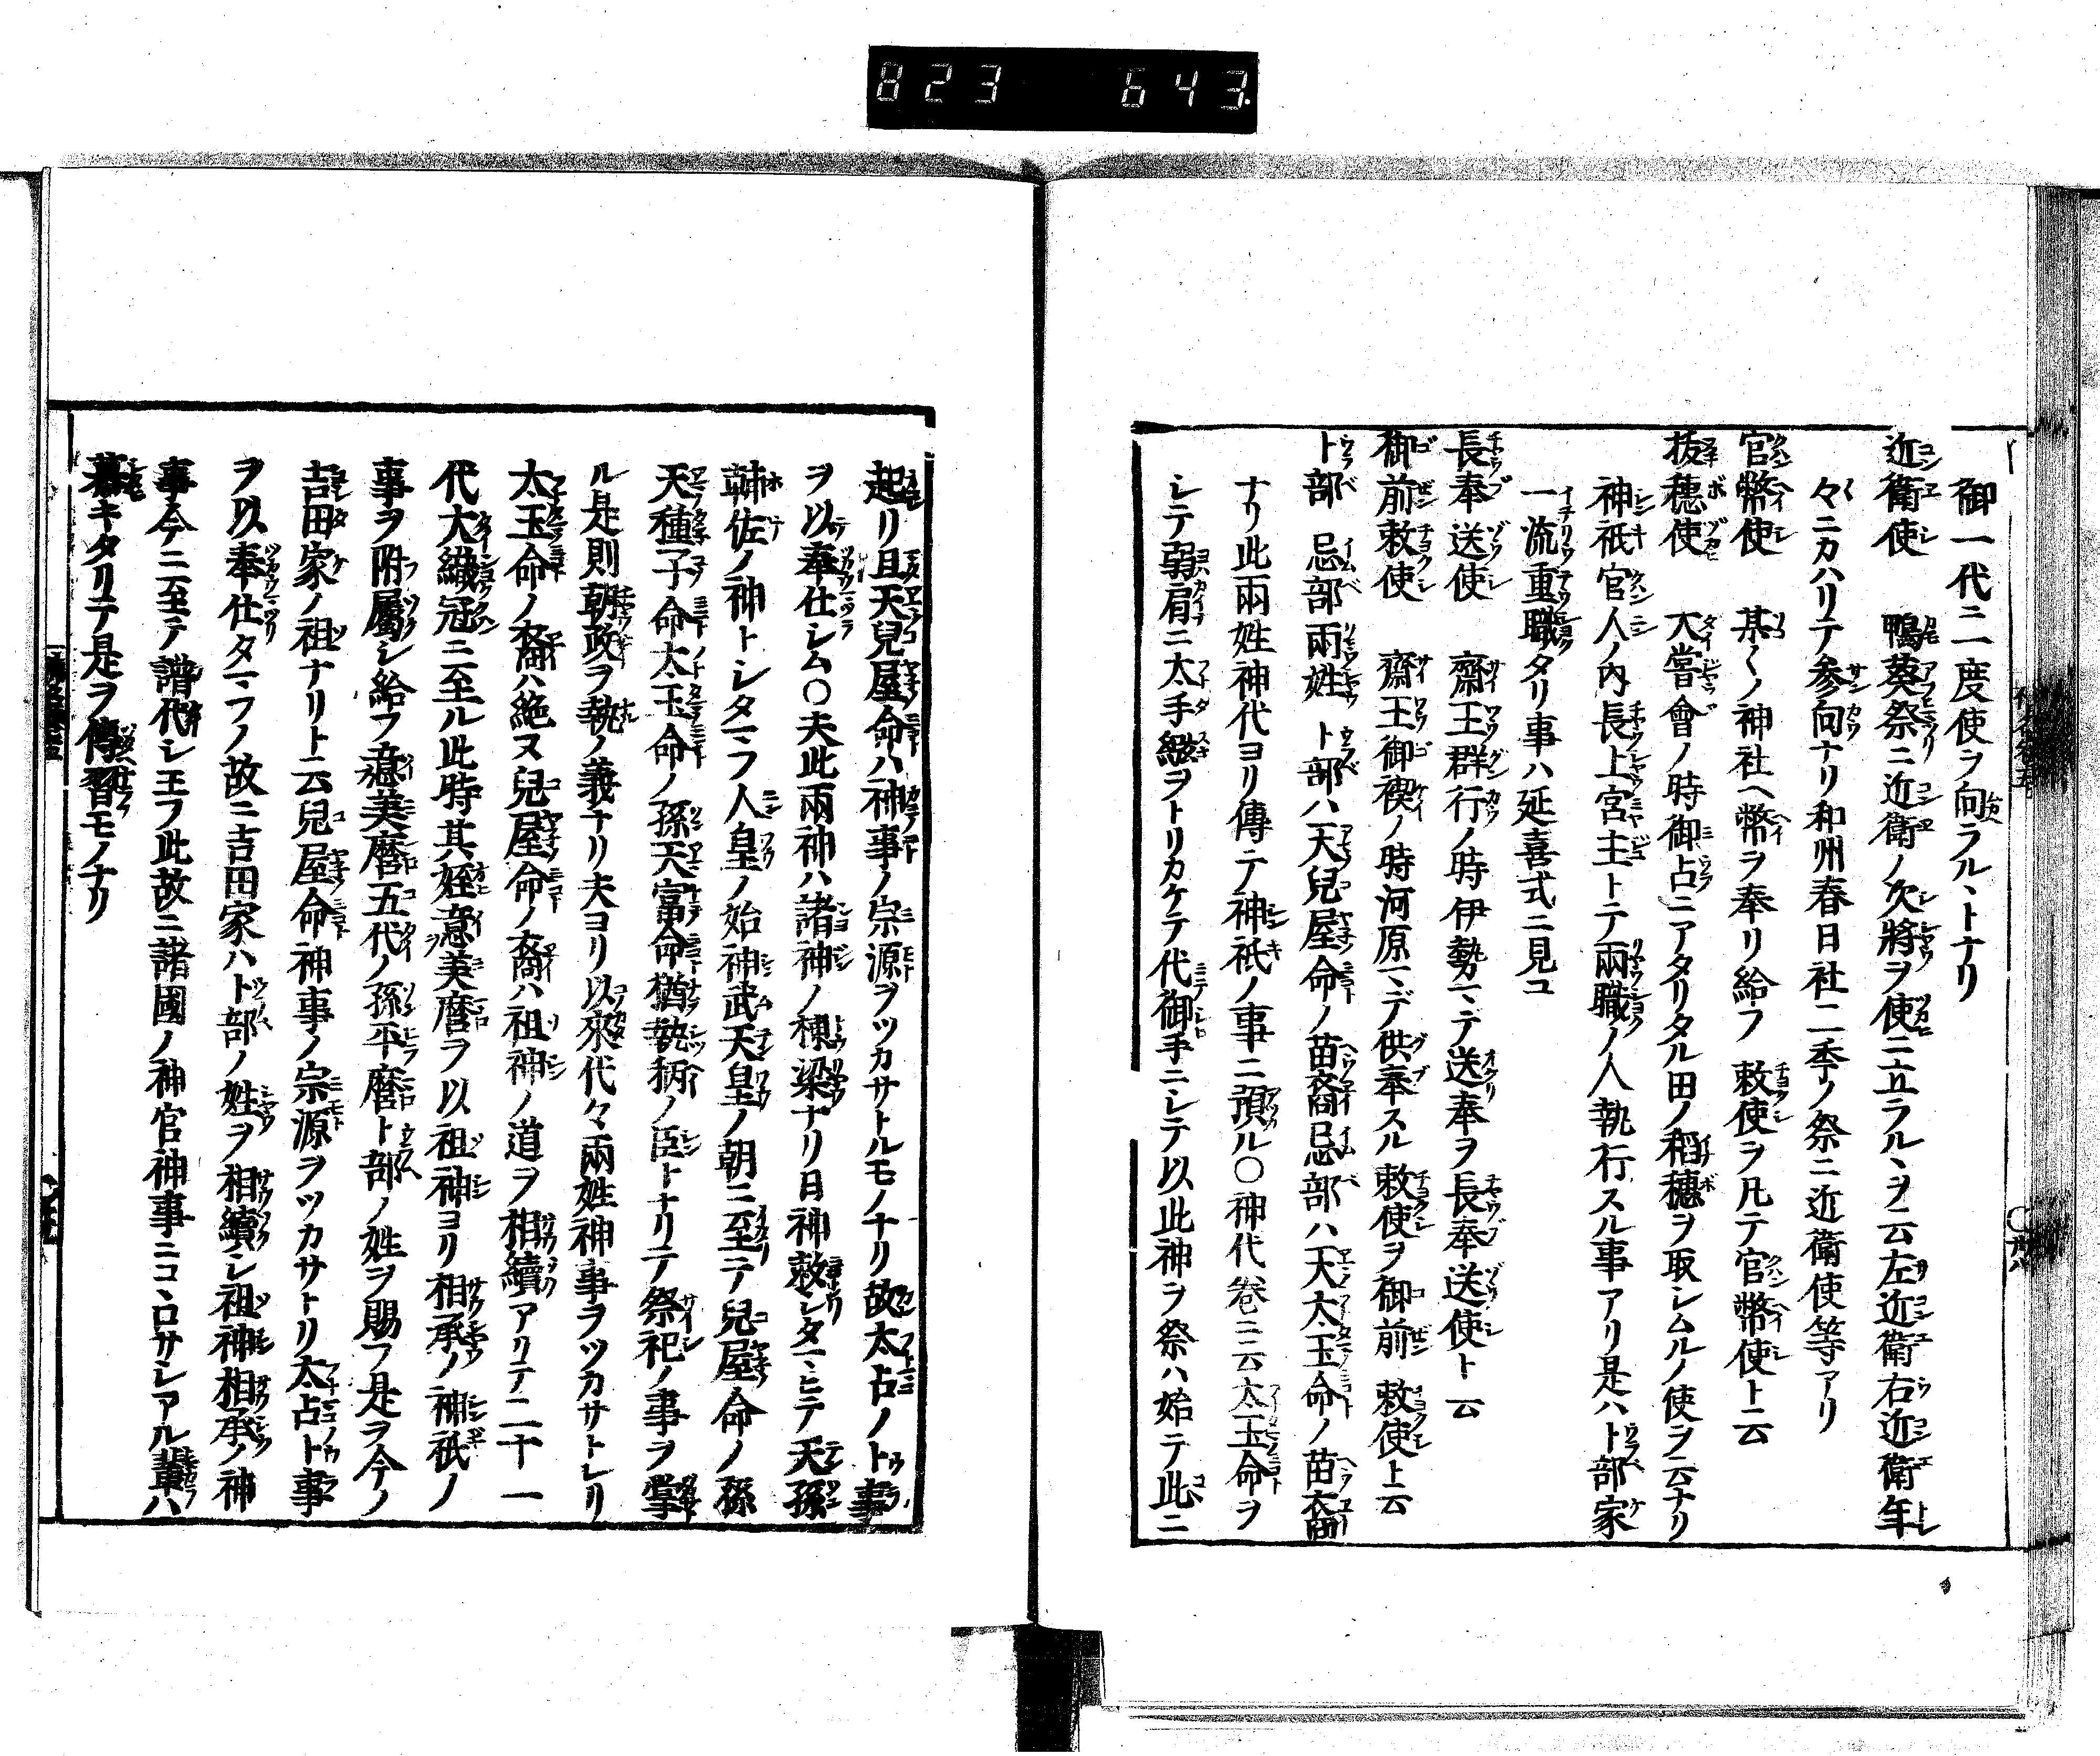 823 643.
御一代ニ一度使ヲ向ラルヽトナリ
近衛使 鴨葵祭ニ近衛ノ次將ヲ使ニ立ラルヽヲ云左近衛右近衛年
々ニカハリテ参向ナリ和州春日社二季ノ祭ニ近衛使等アリ
官幣使 某〱ノ神社ヘ幣ヲ奉リ給フ 敕使ヲ凡テ官幣使ト云
抜穂使 大嘗會ノ時御占ニアタリタル田ノ稻穗ヲ取シムルノ使ヲ云ナリ
神祇官人ノ内長上宮主トテ兩職ノ人執行スル事アリ是ハ卜部家
一流重職タリ事ハ延喜式ニ見コ
長奉送使 齋王群行ノ時伊勢マデ送奉ヲ長奉送使ト云
御前敕使 齋王御禊ノ時河原マデ供奉スル敕使ヲ御前敕使ト云
卜部 忌部兩姓 卜部ハ天兒屋命ノ苗裔忌部ハ天太玉命ノ苗裔
ナリ此兩姓神代ヨリ傳テ神祇ノ事ニ預ル○神代卷ニ云太玉命ヲ
シテ弱肩ニ太手繦ヲトリカケテ代御手ニシテ以此神ヲ祭ハ始テ此ニ
起リ且天兒屋命ハ神事ノ宗源ヲツカサトルモノナリ故太占ノ卜事
ヲ以奉仕シム○夫此兩神ハ諸神ノ棟梁ナリ日神敕シタマヒテ天孫
輔佐ノ神トシタマフ人皇ノ始神武天皇ノ朝ニ至テ兒屋命ノ孫
天種子命太玉命ノ孫天富命猶執柄ノ臣トナリテ祭祀ノ事ヲ掌
ル是則朝政ヲ執ノ義ナリ夫ヨリ以來代々兩姓神事ヲツカサトレリ
太玉命ノ裔ハ絶ヌ兒屋命ノ裔ハ祖神ノ道ヲ相續アリテ二十一
代大織冠ニ至ル此時其姪意美麿ヲ以祖神ヨリ相承ノ神祇ノ
事ヲ附屬シ給フ意美麿五代ノ孫平麿卜部ノ姓ヲ賜フ是ヲ今ノ
吉田家ノ祖ナリト云兒屋命神事ノ宗源ヲツカサトリ太占卜事
ヲ以奉仕タマフノ故ニ吉田家ハ卜部ノ姓ヲ相續シ祖神相承ノ神
事今ニ至テ譜代シ玉フ此故ニ諸國ノ神官神事ニコヽロサシアル輩ハ
慕キタリテ是ヲ傳習モノナリ